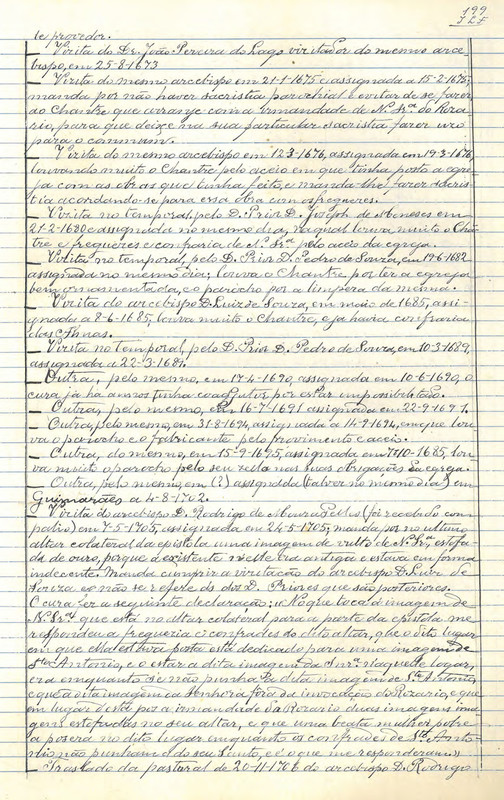 199
se proveder.
— Visita do Dr. João Pereira do Lago visitador do mesmo arce-
bispo, em 25-8-1673
— Visita do mesmo arcebispo em 21-1-1675 e assignada a 15-2-1675;
manda por não haver sacristia parochial e evitar de se fazer,
ao Chantre que arranje com a irmandade de N.ª Sr.ª do Roza-
rio, para que deixe na sua particular sacristia fazer uso
para o commum.
— Visita do mesmo arcebispo em 12-3-1676, assignada em 19-3-1676,
louvando muito o Chantre pelo aceio em que tinha posto a egre-
ja com as obras que tinha feito, e manda-lhe fazer sacris-
tia acordando-se para essa obra com os freguezes.
— Visita no temporal, pelo D. Prior D. Joseph de Menezes em
21-2-1680 e assignada no mesmo dia, na qual louva muito o Chan-
tre e freguezes e confraria de N.ª Sr.ª pelo aceio da egreja.
— Visita no temporal, pelo D. Prior D. Pedro de Souza, em 19-6-1682
assignada no mesmo dia; louva o Chantre, por ter a egreja
bem ornamentada, e o parocho por a limpeza da mesma.
— Visita do arcebispo D. Luiz de Souza, em maio de 1685, assi-
gnada a 8-6-1685; louva muito o Chantre, e ja havia confraria
das Almas.
— Visita no temporal, pelo D. Prior D. Pedro de Souza, em 10-3-1689,
assignada a 22-3-1689.
— Outra, pelo mesmo, em 17-4-1690, assignada em 10-6-1690, o
cura já ha annos tinha coadjutor por estar impossibilitado.
— Outra, pelo mesmo, em 16-7-1691 assignada em 22-9-1691.
— Outra, pelo mesmo, em 31-8-1694, assignada a 14-9-1694, em que lou-
va o parocho e o fabricante pelo provimento e aceio.
— Outra, do mesmo, em 15-9-1695, assignada em 10-1685, lou-
va muito o parocho pelo seu zelo nas suas obrigações da egreja.
— Outra, pelo mesmo, em (?) assignada (talvez no mesmo dia) em
Guimarães a 4-8-1702.
Visita do arcebispo D. Rodrigo de Moura Telles (foi recebido com
palio) em 7-5-1705, assignada em 24-5-1705; manda por no ultimo
altar colateral da epistola uma imagem de vulto de N.ª Sr.ª estofa-
da de ouro, porque a existente neste era antiga e estava em forma
indecente. Manda cumprir a visitação do arcebispo D. Luiz de
Souza e não se refere ás dos D. Priores que são posteriores.
O cura fez a seguinte declaração: «No que toca á imagem de
N. Sr.ª que está no altar colateral para a parte da epistola me
responderam a freguezia e confrades do dito altar, que o dito lugar
em que ella estava posta está dedicado para uma imagem de
Sto Antonio, e o estar a dita imagem da Snr.ª naquelle logar,
era emquanto se não punha a dita imagem de St.º Antonio,
e que a dita imagem da Senhora fora da invocação do Rozario, e que
em lugar d'esta por a irmandade do Rozario duas imagens ima-
gens estofadas no seu altar, e que uma beata mulher pobre
a pozera no dito lugar emquanto os confrades de Sto Anto-
nio não punham o do seu Santo, e é o que me responderam.»
— Traslado da pastoral de 20-11-1706 do arcebispo D. Rodrigo